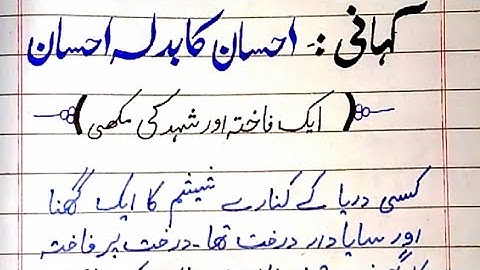 کہانی :- احسان کا بدلہ احسان
(ایک فاختہ اور شہد کی مکھی)
کسی دریا کے کنارے شیشم کا ایک گھنا
اور سایا دار درخت تھا۔ درخت پر فاختہ